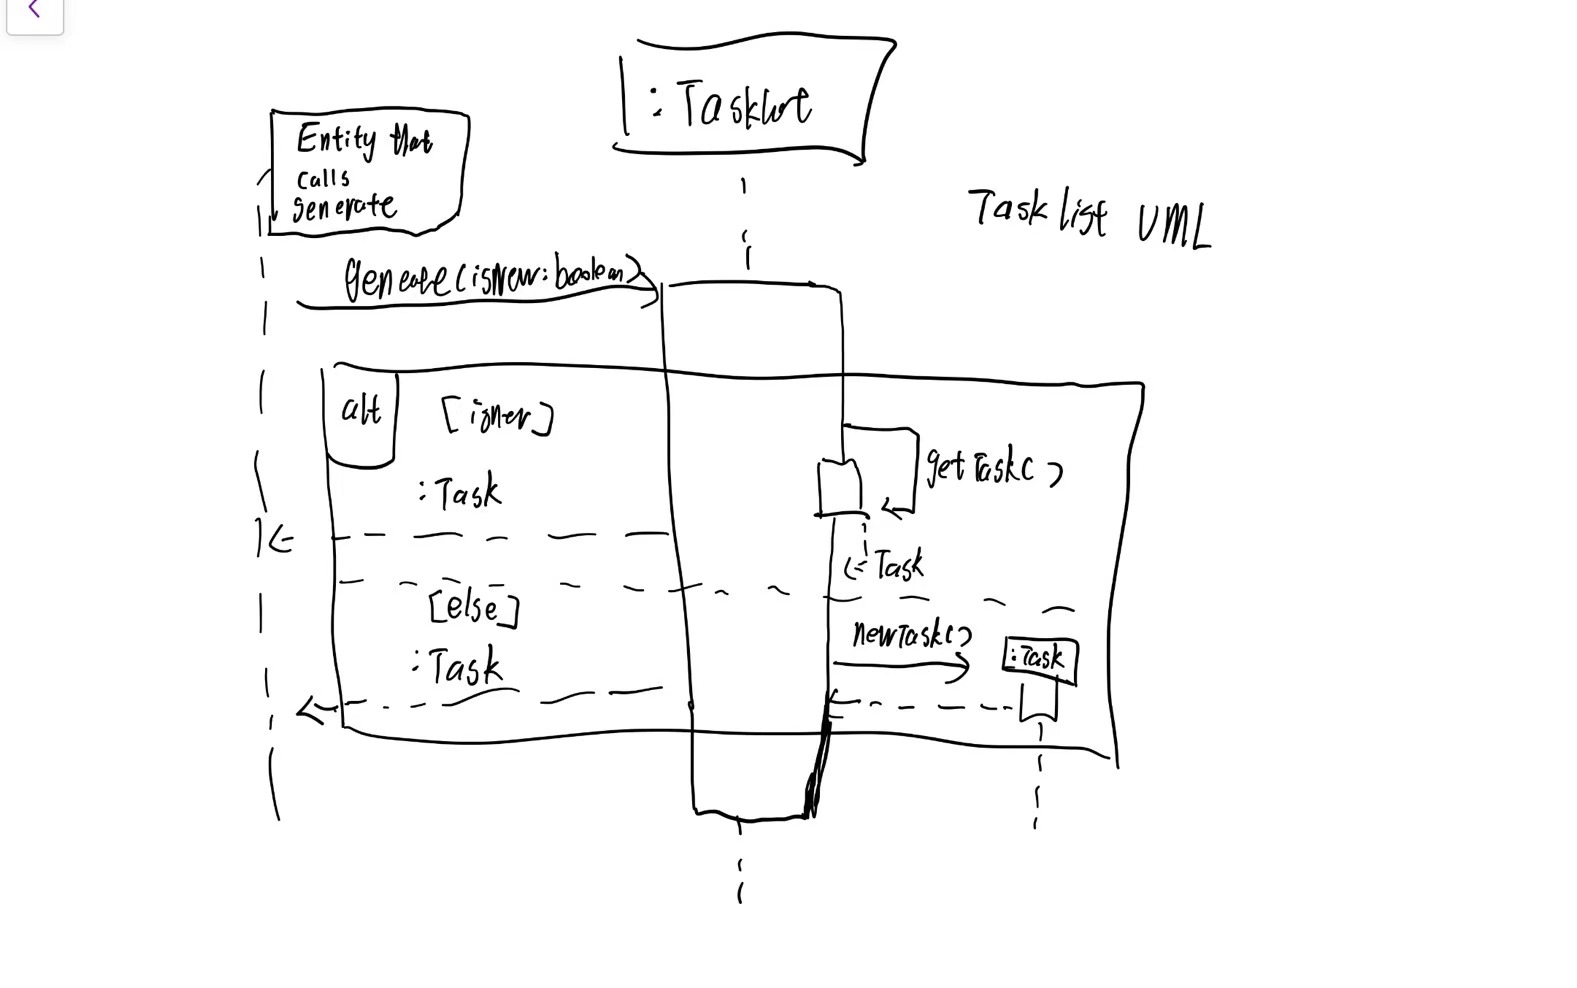 :Tasklist
Entity that
calls
generate
Task list UML
generate(isNew:boolean)
alt
[isNew]
getTask()
:Task
Task
[else]
newTask()
:Task
:Task